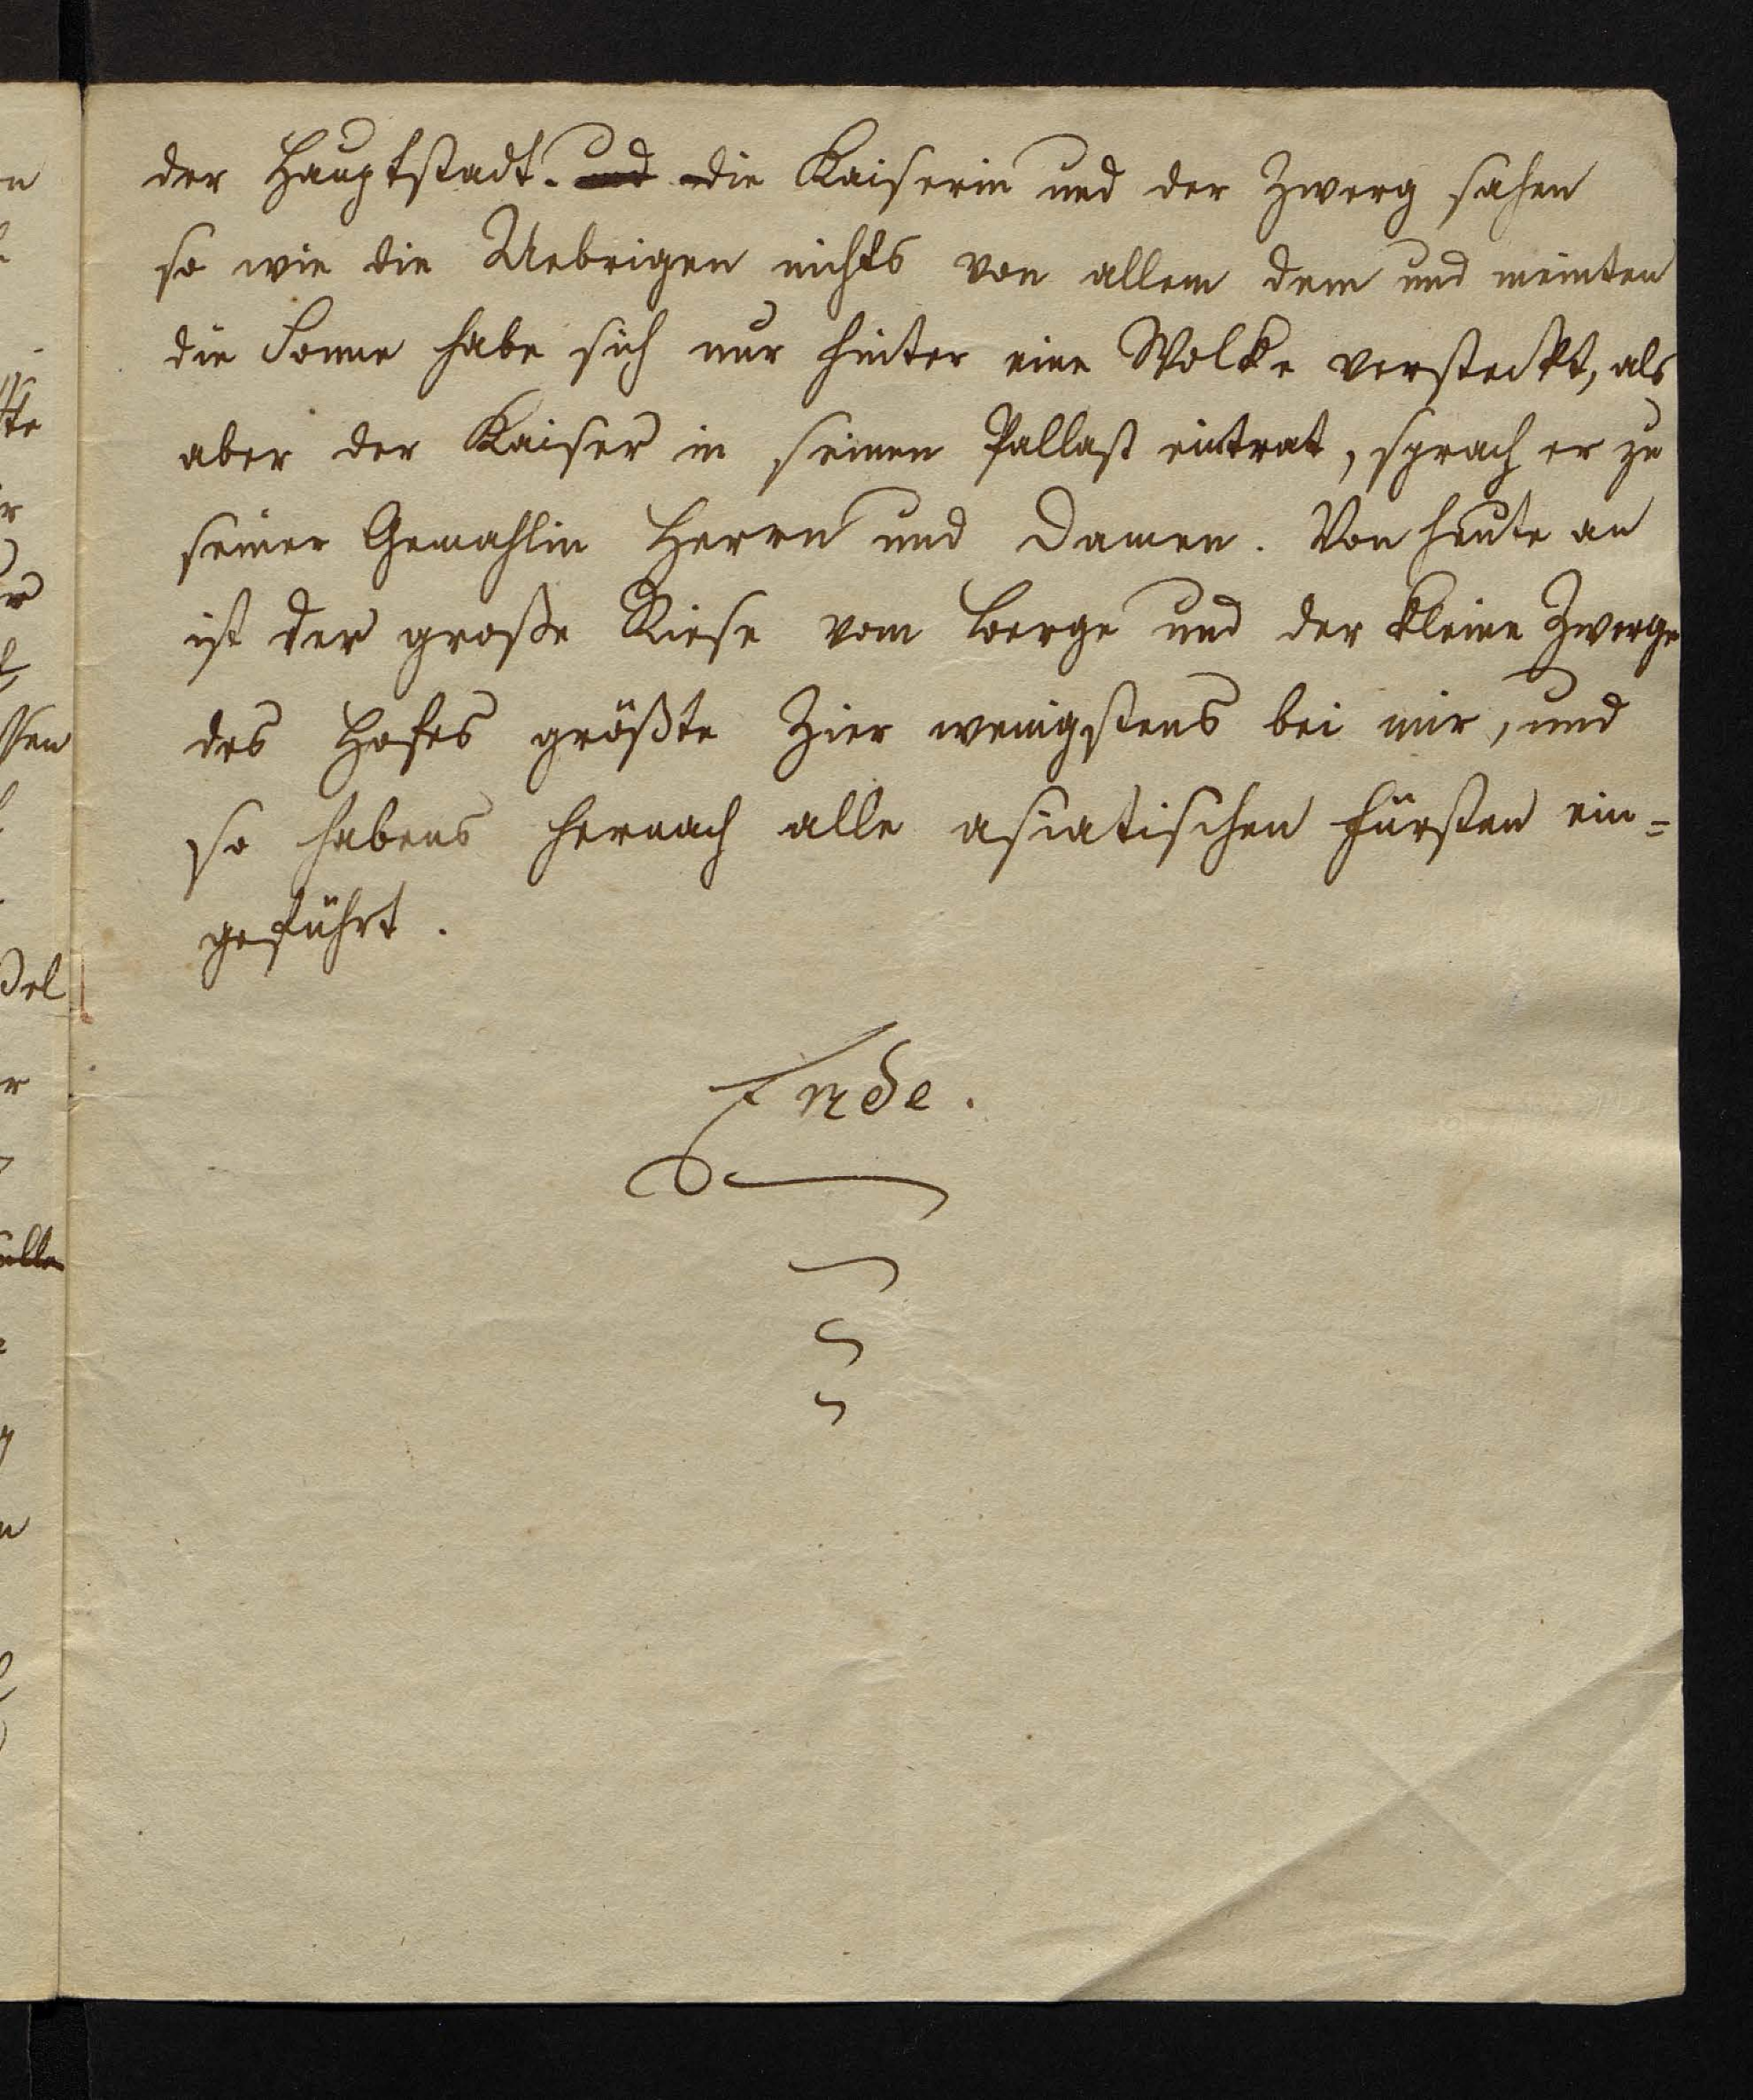 der Hauptstadt. und die Kaiserin und der Zwerg sahen
so wie die Uebrigen nichts von allem dem und meinten
die Sonne habe sich nur hinter eine Wolke versteckt, als
aber der Kaiser in seinen Pallast eintrat, sprach er zu
seiner Gemahlin Herrn und Damen. Von heute an
ist der große Riese vom Berge und der kleine Zwerge
des Hofes größte Zier wenigstens bei mir, und
so habens hernach alle asiatischen Fürsten ein=
geführt.
Ende.